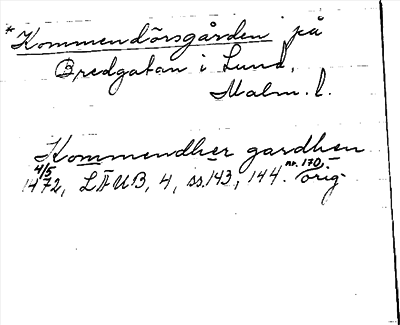 *Kommendörsgården på
Bredgatan i Lund,
Malm. l.
Kommendher gardhen
4/5 1472, LÄUB, 4, ss. 143, 144. nr. 170, orig.